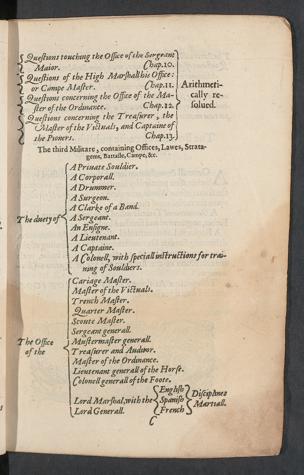 Questions touching the Office of the Sergeant
Maior. Chap.10.
Questions of the High Marshall his Office:
or Campe Master. Chap.11.
Questions concerning the Office of the Ma-
ster of the Ordinance. Chap.12.
Questions concerning the Treasurer, the
Master of the Victuals, and Captaine of
the Pioners. Chap.13.
Arithmeti-
cally re-
solued.
The third Militare, containing Offices, Lawes, Strata-
gems, Battaile, Campe, &c.
The duety of
A Priuate Souldier.
A Corporall.
A Drummer.
A Surgeon.
A Clarke of a Band.
A Sergeant.
An Ensigne.
A Lieutenant.
A Captaine.
A Colonell, with speciall instructions for trai-
ning of Souldiers.
The Office
of the
Cariage Master.
Master of the Victuals.
Trench Master.
Quarter Master.
Scoute Master.
Sergeant generall.
Mustermaster generall.
Treasurer and Auditor.
Master of the Ordinance.
Lieutenant generall of the Horse.
Colonell generall of the Foote.
Lord Marshal, with the
Lord Generall.
English
Spanish
French
Disciplines
Martiall.
C